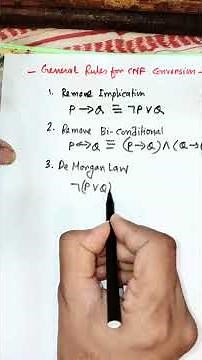 - General Rules for CNF Conversion -
1. Remove Implication
P → Q ≡ ¬P ∨ Q
2. Remove Bi-conditional
P ↔ Q ≡ (P → Q) ∧ (Q →
3. De Morgan Law
¬(P ∨ Q)